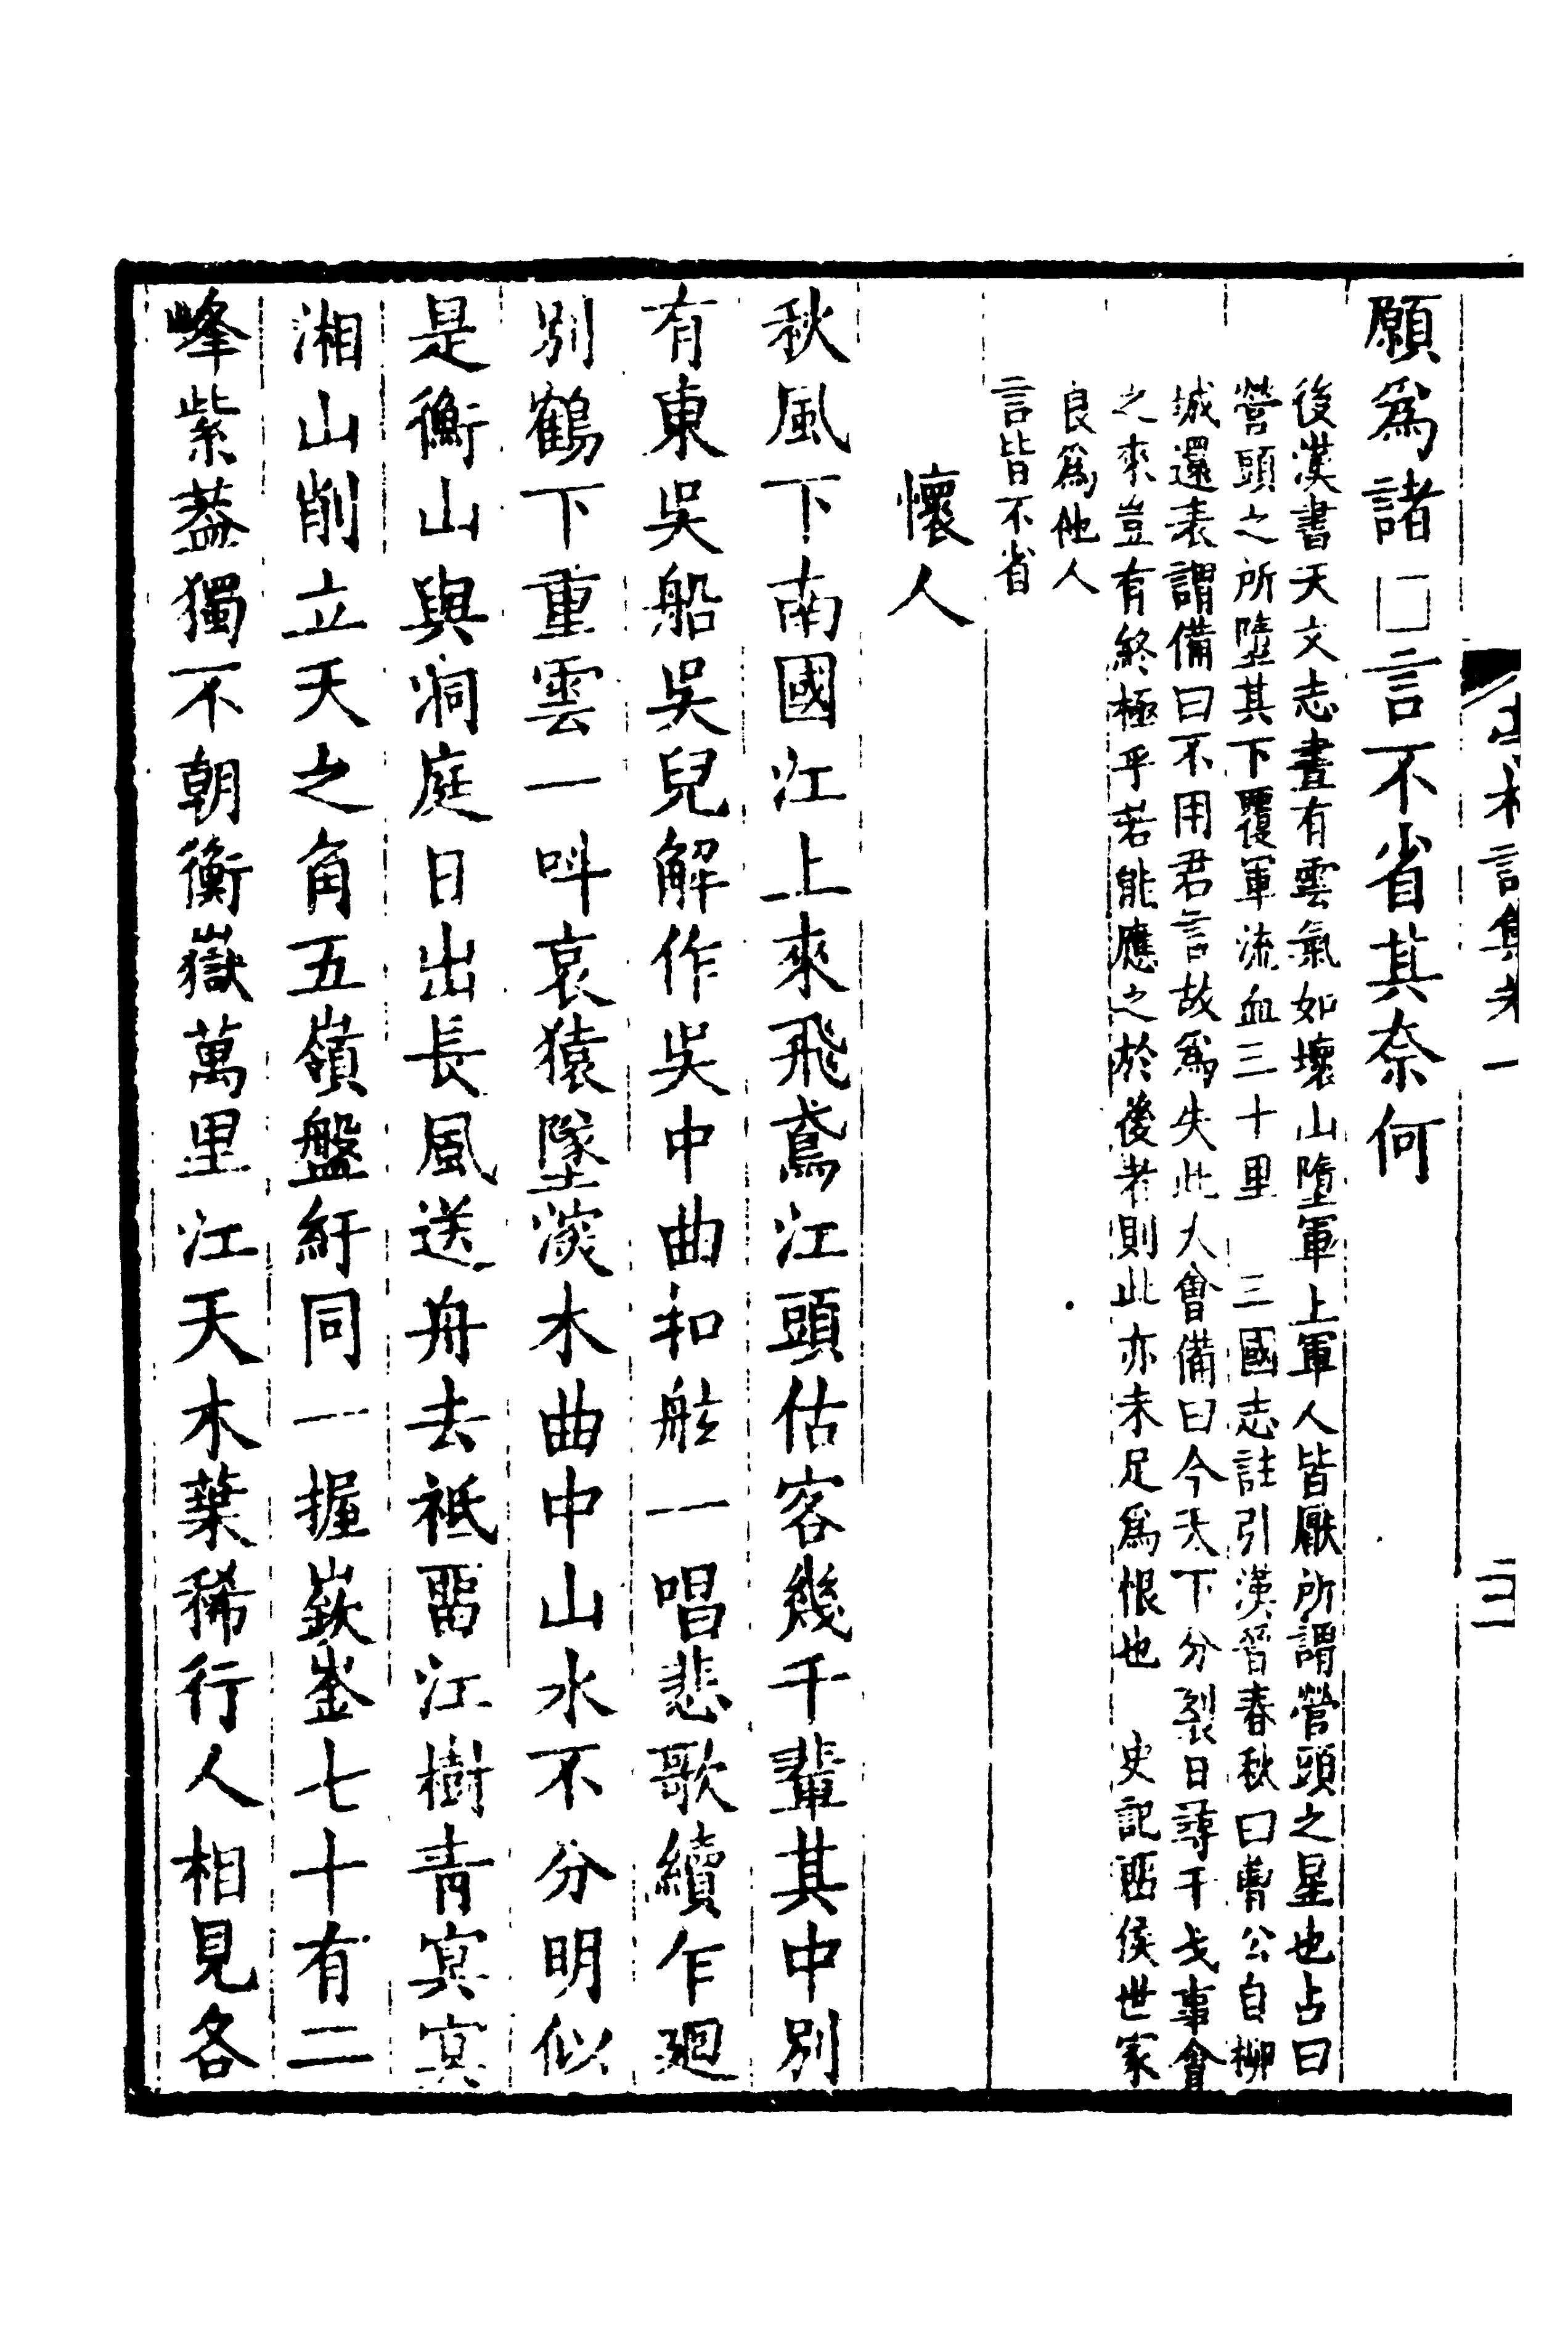 願爲諸□言不省其奈何
後漢書天文志晝有雲氣如壞山墮軍上軍人皆厭所謂營頭之星也占曰
營頭之所墮其下覆軍流血三十里　三國志註引漢晉春秋曰曹公自柳
城還表謂備曰不用君言故爲失此大會備曰今天下分裂日尋干戈事會
之來豈有終極乎若能應之於後者則此亦未足爲恨也　史記畱侯世家
良爲他人
言皆不省
懷人
秋風下南國江上來飛鳶江頭估客幾千輩其中別
有東吳船吳兒解作吳中曲和舷一唱悲歌續乍廻
別鶴下重雲一呌哀猿墜深木曲中山水不分明似
是衡山與洞庭日出長風送舟去祗畱江樹靑冥冥
湘山削立天之角五嶺盤紆同一握嶔崟七十有二
峰紫蓋獨不朝衡嶽萬里江天木葉稀行人相見各
詩集卷一
三